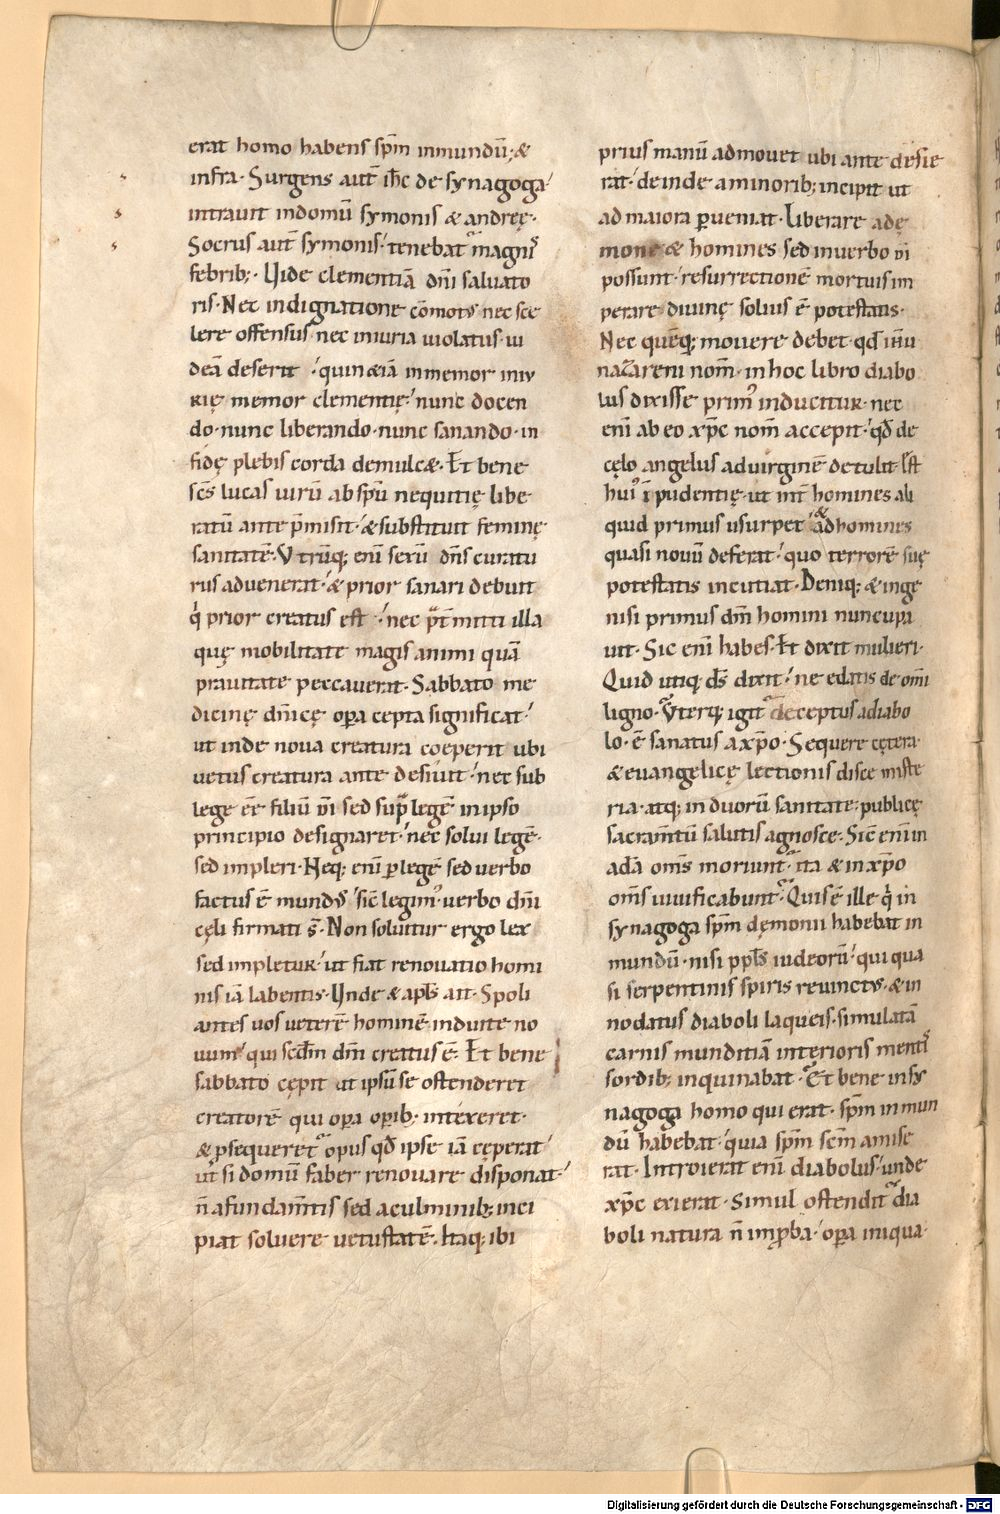 erat homo habens spm̄ inmundū; &
infra· Surgens aut̄ ih̄c de synagoga·
intrauit indomū symonis & andreę·
Socrus aut̄ symonis· tenebat magnis
febrib;· Uide clementiā dn̄i saluato
ris· Nec indignatione cōmotꝰ nec sce
lere offensus nec iniuria uiolatus· iu
deā deserit· quin &iā inmemor iniu
rię memor clementię· nunc docen
do· nunc liberando· nunc sanando· in
fidę plebis corda demulc&· Et bene
sc̄s lucas uirū ab spū nequitię libe
ratū ante p̄misit· & substituit feminę
sanitatē· Vtrūq; eni̅ sexū dn̄s curatu
rus aduenerat· & prior sanari debuit
qͥ prior creatus est· nec p̄t̄mitti illa
quę mobilitate magis animi quā
prauitate peccauerat· Sabbato me
dicinę dn̄icę oꝑa cepta significat·
ut inde noua creatura coeperit ubi
uetus creatura ante desiuit· nec sub
lege ee̅ filiū di̅ sed supͣ legē in ipso
principio designaret· nec solui legē·
sed impleri· Neq; eni̅ ꝑ legē sed uerbo
factus ē mundꝰ sic̄ legimꝰ· uerbo dn̄i
cęli firmati s̄· Non soluitur ergo lex
sed impletur· ut fiat renouatio homi
nis iā labentis· Unde & apl̄s ait· Spoli
antes uos ueterē hominē· induite no
uum· qui scd̄m dm̄ creatus ē· Et bene
sabbato cępit ut ipsū se ostenderet
creatorē qui oꝑa oꝑib; intexeret·
& ꝓsequeret̄ opus qd̄ ipse iā cęperat·
ut si domū faber renouare disponat·
n̄ afundam̄tis sed aculminib; inci
piat soluere uetustatē· Itaq; ibi
prius manū admouet ubi ante desie
rat· deinde aminorib; incipit ut
ad maiora ꝑueniat· Liberare adę
mone & homines sed inuerbo di̅
possunt· resurrectionē mortuis im
perare diuinę solius ē potestatis·
Nec quēq; mouere debet· qd̄ ih̅u
nazareni nom̄· in hoc libro diabo
lus dixisse primꝰ inducitur· nec
eni̅ ab eo xp̄c nom̄ accepit· qd̄ de
cęlo angelus ad uirginē detulit· Est
huiꝰ īpudentię· ut int̄ homines ali
quid primus usurpet & ad homines
quasi nouū deferat· quo terrorē suę
potestatis incutiat· Deniq; & in ge
nisi primus dm̄ homini nuncupa
uit· Sic eni̅ habes· Et dixit mulieri·
Quid utiq; ds̄ dixit· ne edatis de omi̅
ligno· Vterq; igit̄ deceptus a diabo
lo· ē sanatus a xp̄o· Sequere cętera
& euangelicę lectionis disce miste
ria· atq; in duorū sanitate· publicę
sacram̄tū salutis agnosce· Sic̄ eni̅ in
adā om̄s moriunt̄· ita & in xp̄o
om̄s uiuificabunt̄· Quis ē ille qͥ in
synagoga spm̄ dęmonii habebat in
mundū· nisi ppl̄s iudeorū· qui qua
si serpentinis spiris reuinctꝰ· & in
nodatus diaboli laqueis· simulatā
carnis munditiā interioris mentis
sordib; inquinabat· Et bene in sy
nagoga homo qui erat· spm̄ inmun
dū habebat· quia spm̄ scm̄ amise
rat· Introierat eni̅ diabolus· unde
xp̄c exierat· Simul ostendit̄ dia
boli natura n̄ inꝓba· oꝑa iniqua·
Digitalisierung gefördert durch die Deutsche Forschungsgemeinschaft - DFG